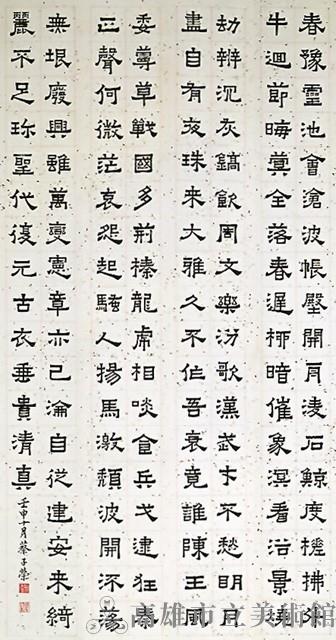 春豫靈池會滄波帳壂開舟凌石鯨度槎拂斗
牛迴節晦蓂全落春遲柳暗催象溟看浴景燒
劫辨沉灰鎬飲周文樂汾歌漢武才不愁明月
盡自有夜珠來大雅久不作吾衰竟誰陳王風
委蔓草戰國多荊榛龍虎相啖食兵戈逮狂秦
正聲何微茫哀怨起騷人揚馬激頹波開流蕩
無垠廢興雖萬變憲章亦已淪自從建安來綺
麗不足珍聖代復元古衣垂貴清真
壬申十月蔡子榮
高雄市立美術館